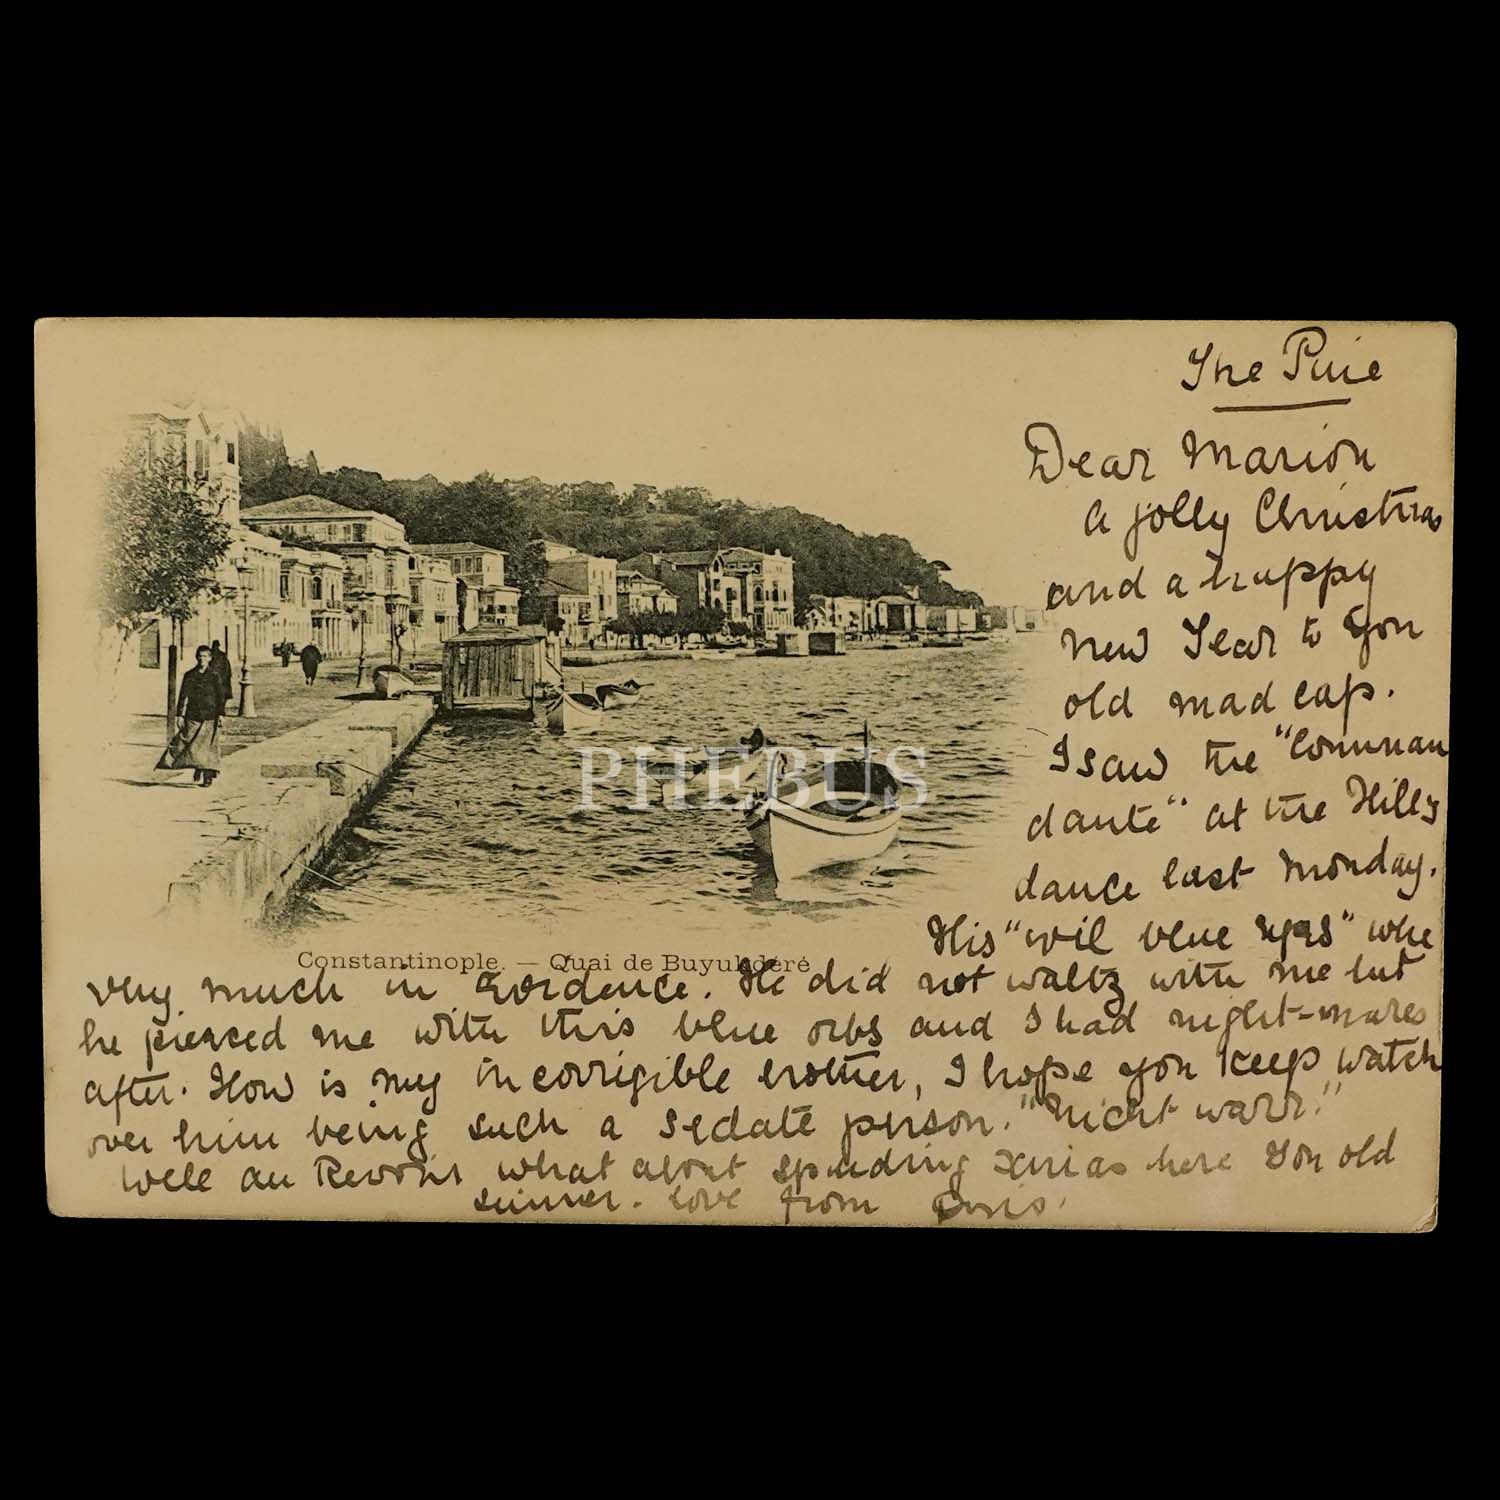 The Pine
Dear Marion
a jolly Christmas
and a happy
New Year to you
old mad cap.
I saw the "Comman
dante" at the Hills
dance last Monday.
His "wil blue eyes" whe
Constantinople. — Quai de Buyukdéré
very much in Evidence. He did not waltz with me but
he pierced me with this blue orbs and I had night-mares
after. How is my incorrigible brother, I hope you keep watch
over him being such a sedate person. "Nicht wahr."
Well au Revoir what about spending Xmas here You old
sinner. love from
PHEBUS